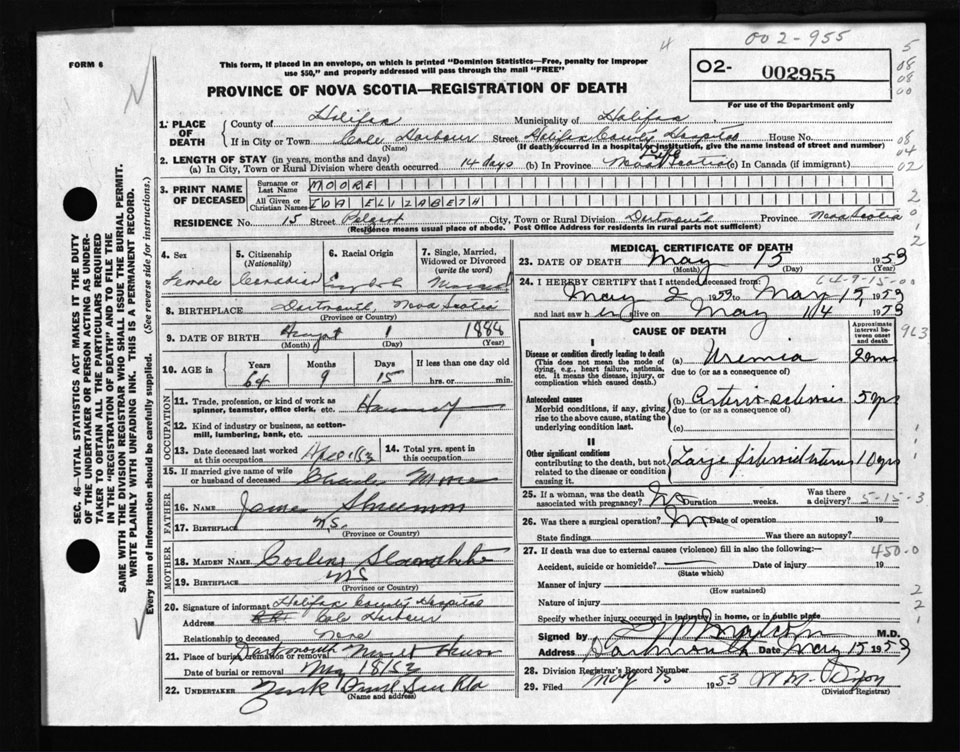 002-955
4
FORM 6
This form, if placed in an envelope, on which is printed "Dominion Statistics—Free, penalty for improper
use $50," and properly addressed will pass through the mail "FREE"
PROVINCE OF NOVA SCOTIA—REGISTRATION OF DEATH
O2- 002955
For use of the Department only
5
08
08
00
08
04
02
2
0
1
2
SEC. 46—VITAL STATISTICS ACT MAKES IT THE DUTY
OF THE UNDERTAKER OR PERSON ACTING AS UNDER-
TAKER TO OBTAIN ALL THE PARTICULARS REQUIRED
IN THE "REGISTRATION OF DEATH" AND TO FILE THE
SAME WITH THE DIVISION REGISTRAR WHO SHALL ISSUE THE BURIAL PERMIT.
WRITE PLAINLY WITH UNFADING INK. THIS IS A PERMANENT RECORD.
Every item of information should be carefully supplied. (See reverse side for instructions.)
1. PLACE OF DEATH
County of Halifax Municipality of Halifax
If in City or Town Cole Harbour Street Halifax County Hospital House No.
(Name) (If death occurred in a hospital or institution, give the name instead of street and number)
2. LENGTH OF STAY (in years, months and days)
(a) In City, Town or Rural Division where death occurred 14 days (b) In Province Life Nova Scotia (c) In Canada (if immigrant)
3. PRINT NAME OF DECEASED
Surname or Last Name MOORE
All Given or Christian Names IDA ELIZABETH
RESIDENCE No. 15 Street City, Town or Rural Division Dartmouth Province Nova Scotia
(Residence means usual place of abode. Post Office Address for residents in rural parts not sufficient)
4. Sex Female
5. Citizenship (Nationality) Canadian
6. Racial Origin English
7. Single, Married, Widowed or Divorced (write the word) Married
8. BIRTHPLACE Dartmouth, Nova Scotia
(Province or Country)
9. DATE OF BIRTH August 1 1888
(Month) (Day) (Year)
10. AGE in Years 64 Months 9 Days 15 If less than one day old
hrs. or min.
OCCUPATION
11. Trade, profession, or kind of work as spinner, teamster, office clerk, etc.
12. Kind of industry or business, as cotton-mill, lumbering, bank, etc.
13. Date deceased last worked at this occupation
14. Total yrs. spent in this occupation
15. If married give name of wife or husband of deceased Charles Moore
FATHER
16. Name James
17. Birthplace N.S.
(Province or Country)
MOTHER
18. MAIDEN NAME
19. BIRTHPLACE NS
(Province or Country)
20. Signature of informant Halifax County Hospital
Address Cole Harbour
Relationship to deceased None
21. Place of burial, cremation or removal Dartmouth Mount Hermon
Date of burial or removal May 18/53
22. UNDERTAKER
(Name and address)
MEDICAL CERTIFICATE OF DEATH
23. DATE OF DEATH May 15 1953
(Month) (Day) (Year)
64-9-15-00
24. I HEREBY CERTIFY that I attended deceased from
May 2 1953 to May 15, 1953
and last saw her alive on May 14 1953
CAUSE OF DEATH
Approximate interval between onset and death
963
I
Disease or condition directly leading to death
(This does not mean the mode of dying, e.g., heart failure, asthenia, etc. It means the disease, injury, or complication which caused death.)
(a) Uremia
due to (or as a consequence of)
Antecedent causes
Morbid conditions, if any, giving rise to the above cause, stating the underlying condition last.
(b) Arterio-sclerosis 5 yrs
due to (or as a consequence of)
(c)
II
Other significant conditions
contributing to the death, but not related to the disease or condition causing it.
Large fibroid uterus 10 yrs
25. If a woman, was the death associated with pregnancy? No Duration weeks. Was there a delivery?
5-15-3
26. Was there a surgical operation? No Date of operation 19
State findings Was there an autopsy?
27. If death was due to external causes (violence) fill in also the following:—
450-0
Accident, suicide or homicide? Date of injury 19
(State which)
Manner of injury
(How sustained)
Nature of injury
Specify whether injury occurred in industry, in home, or in public place
Signed by M.D.
Address Dartmouth Date May 15 1953
28. Division Registrar's Record Number
29. Filed May 15 1953
(Division Registrar)